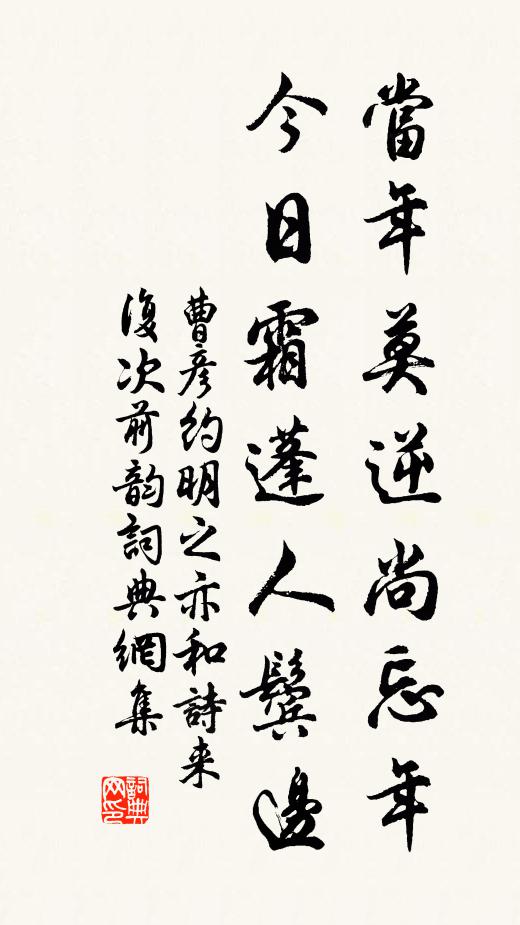 當年莫逆尚忘年
今日霜蓬人鬢邊
曹彥約明之亦和詩来
復次前韵詞典網集
詞典网印